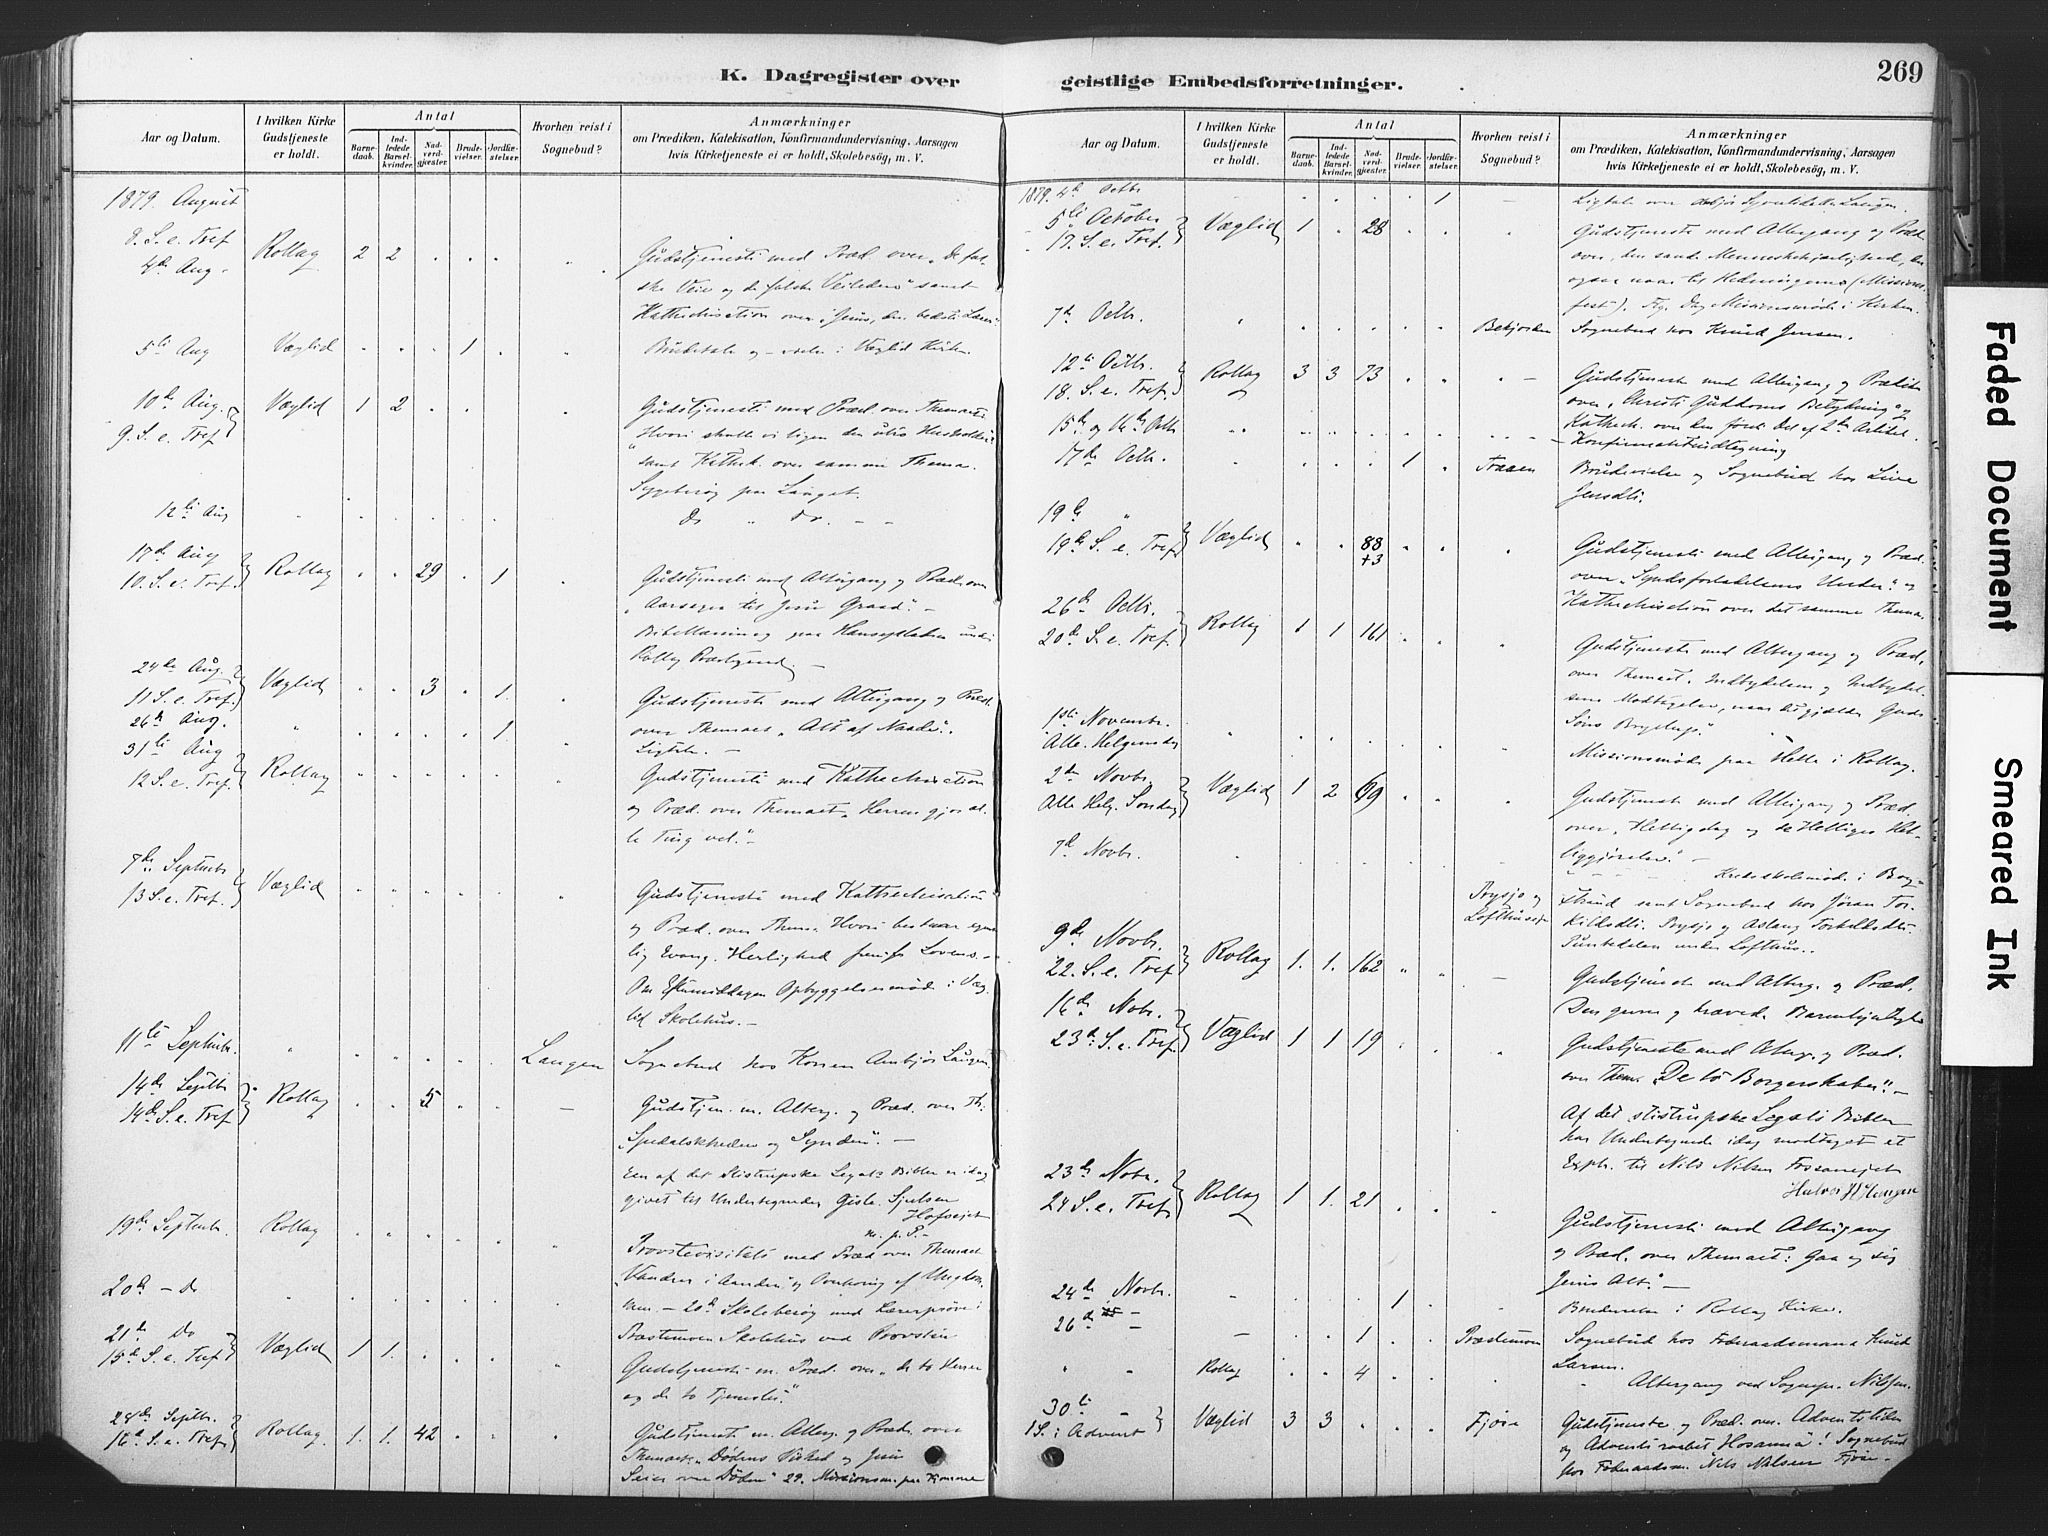 K. Dagregister over geistlige Embedsforretninger.
269
Aar og Datum.
I hvilken Kirke Gudstjeneste er holdt.
Antal
Barnedaab.
Indledede Barselkvinder.
Nadverdgjester.
Brudevielser.
Jordfæstelser.
Hvorhen reist i Sognebud?
Anmærkninger
om Prædiken, Katekisation, Konfirmandundervisning, Aarsagen
hvis Kirketjeneste ei er holdt, Skolebesøg, m. V.
1879. August
8. S. e. Tref
4de Aug. Rollag 2 2 Gudstjeneste med Præd over "De fal-
ske Veie og de falske Veiledere" samt
Kathechisation over "Jesus, den bedste Lærer".
5te Aug Væglid 1 Brudetale og -vielse i Væglid Kirke.
10de Aug. Væglid 1 2
9. S. e. Tref Gudstjeneste med Præd. over Themaet
"Hvori skulle vi ligne den utro Husholder"
samt Kathek. over samme Thema.
Sygebesøg paa
12te Aug Do " do. - -
17de Aug
10. S. e. Tref. Rollag 29 1 Gudstjeneste med Altergang og Præd. over
"Aarsagen til Jesu Graad". -
Bibellæsning paa Huusmandspladsen under
Rollag Præstegaard. -
24de Aug.
11 S. e. Tref. Væglid 3 1. Gudstjeneste med Altergang og Præd.
26de Aug. " 1 over Themaet "Alt af Naade".
Ligtale. -
31te Aug
12 S. e. Tref. Rollag Gudstjeneste med Kathechisation
og Præd. over Themaet "Herren gjør al-
le Ting vel". -
7de Septembr
13 S. e. Tref. Væglid Gudstjeneste med Kathechisation
og Præd. over Thema. Hvori bestaar egent-
lig Evang. Herlighed fremfor Lovens. -
Om Eftermiddagen Opbyggelsesmøde i Væg-
lid Skolehus. -
11te Septembr. " Langen Sognebud hos Konen Anbjør Laugen.
14de Septbr
14de S. e. Tref Rollag 5 - Gudstjen. m. Alterg. og Præd. over Th:
"Spedalskheden og Synden". -
Een af det Stistrupske Legats Bibler er idag
givet til Undertegnede Gisle Sjulsen
Hofsejet
m. p. P. -
19de Septembr. Rollag Provstevisitats med Præd over Themaet
20de - do "Vandrer i Aanden" og Overhøring af Ungdom-
men. - 20de Skolebesøg med Lærerprøve i
21de Do
15de S. e. Tref Væglid 1 1. Præstemoen Skolehus ved Provsten
Gudstjeneste m. Præd. over "de to Herrer
og de to Tjenester."
28de Septbr.
16de S. e. Tref Rollag. 1. 1. 42 Gudstjeneste m. Alterg. og Præd. over
Themaet "Dødens Vished og Jesu
Seier over Døden" 29. Missionsm. paa
Aar og Datum.
I hvilken Kirke Gudstjeneste er holdt.
Antal
Barnedaab.
Indledede Barselkvinder.
Nadverdgjester.
Brudevielser.
Jordfæstelser.
Hvorhen reist i Sognebud?
Anmærkninger
om Prædiken, Katekisation, Konfirmandundervisning, Aarsagen
hvis Kirketjeneste ei er holdt, Skolebesøg, m. V.
1879. 4de Octbr - 1 - Ligtale over
5te October
17. S. e. Tref. Væglid 1 28 Gudstjeneste med Altergang og Præd
over "den sande Menneskekjærlighed, der
ogsaa naar til Hedningerne (Missions-
fest). Fg. Dag Missionsmøde i Kirken.
7de Octbr. " Bekjorden Sognebud hos Knud Jensen.
12te Octbr.
18. S. e. Tref. Rollag 3 3 73 - Gudstjeneste med Altergang og Prædiken
over "Christi Guddoms Betydning" og
Kathech. over den første Del af 2den Artikel.
15de og 16de Octbr " - Konfirmationsudtegning
17de Octbr. " 1 Fraaen Brudevielse og Sognebud hos Live
Jensdtr.
19de "
19de S. e. Tref Væglid 88
+3 Gudstjeneste med Altergang og Præd.
over "Syndsforladelsens Under" og
Kathechisation over det samme Thema.
26de Octbr.
20de S. e. Tref. Rollag 1 1 161 Gudstjeneste med Altergang og Præd.
over Themaet. Indbydelsen og Indbydel-
sens Modtagelse, naar det gjælder Guds
Søns Bryllup."
1ste Novembr.
Alle Helgensdag " Missionsmøde paa Helle i Rollag.
2den Novbr.
Alle Helg. Søndag Væglid 1 2 69 Gudstjeneste med Altergang og Præd.
over "Helligdag og de Helliges Hel-
liggjørelse". -
7de Novbr. Brysjø og
Lofthuseje Kredsskolemøde i Berg-
strand samt Sognebud hos Jøran Tor-
kildsdtr. Brysjø og Aslaug Torkildsdtr.
under Lofthus.
9de Novbr.
22. S. e. Tref Rollag 1. 1. 162 - Gudstjeneste med Alterg. og Præd.
Den givne og krævede Barmhjertighed
16de Nobr.
23de S. e. Tref Væglid 1 1 19 Gudstjeneste med Alterg. og Præd.
over Them. "De to Borgerskaber". -
Af det stistrupske Legats Bibler
har Undertegnede idag modtaget et
Expl. til Nils Nilsen Fossaneiet
Halvor
23de Nobr.
24 S. e. Tref. Rollag 1 1. 21 Gudstjeneste med Altergang
og Præd. over Themaet: Gaa og sig
Jesus Alt". -
24de Novbr. - 1 Brudevielse i Rollag Kirke.
26de - - 1 Prestemoen Sognebud hos Føderaadsmand Knud
Larsen.
" - Rollag 4 Altergang ved Sognepr. Nilssen.
30te -
1 S. i Advent Væglid 3 3 Fjøse Gudstjeneste og Præd. over. Adventstiden
og Adventsraabet Hosanna! Sognebud
hos Føderaadsm. Nils Nilsen Fjøse. -
Faded Document
Smeared Ink